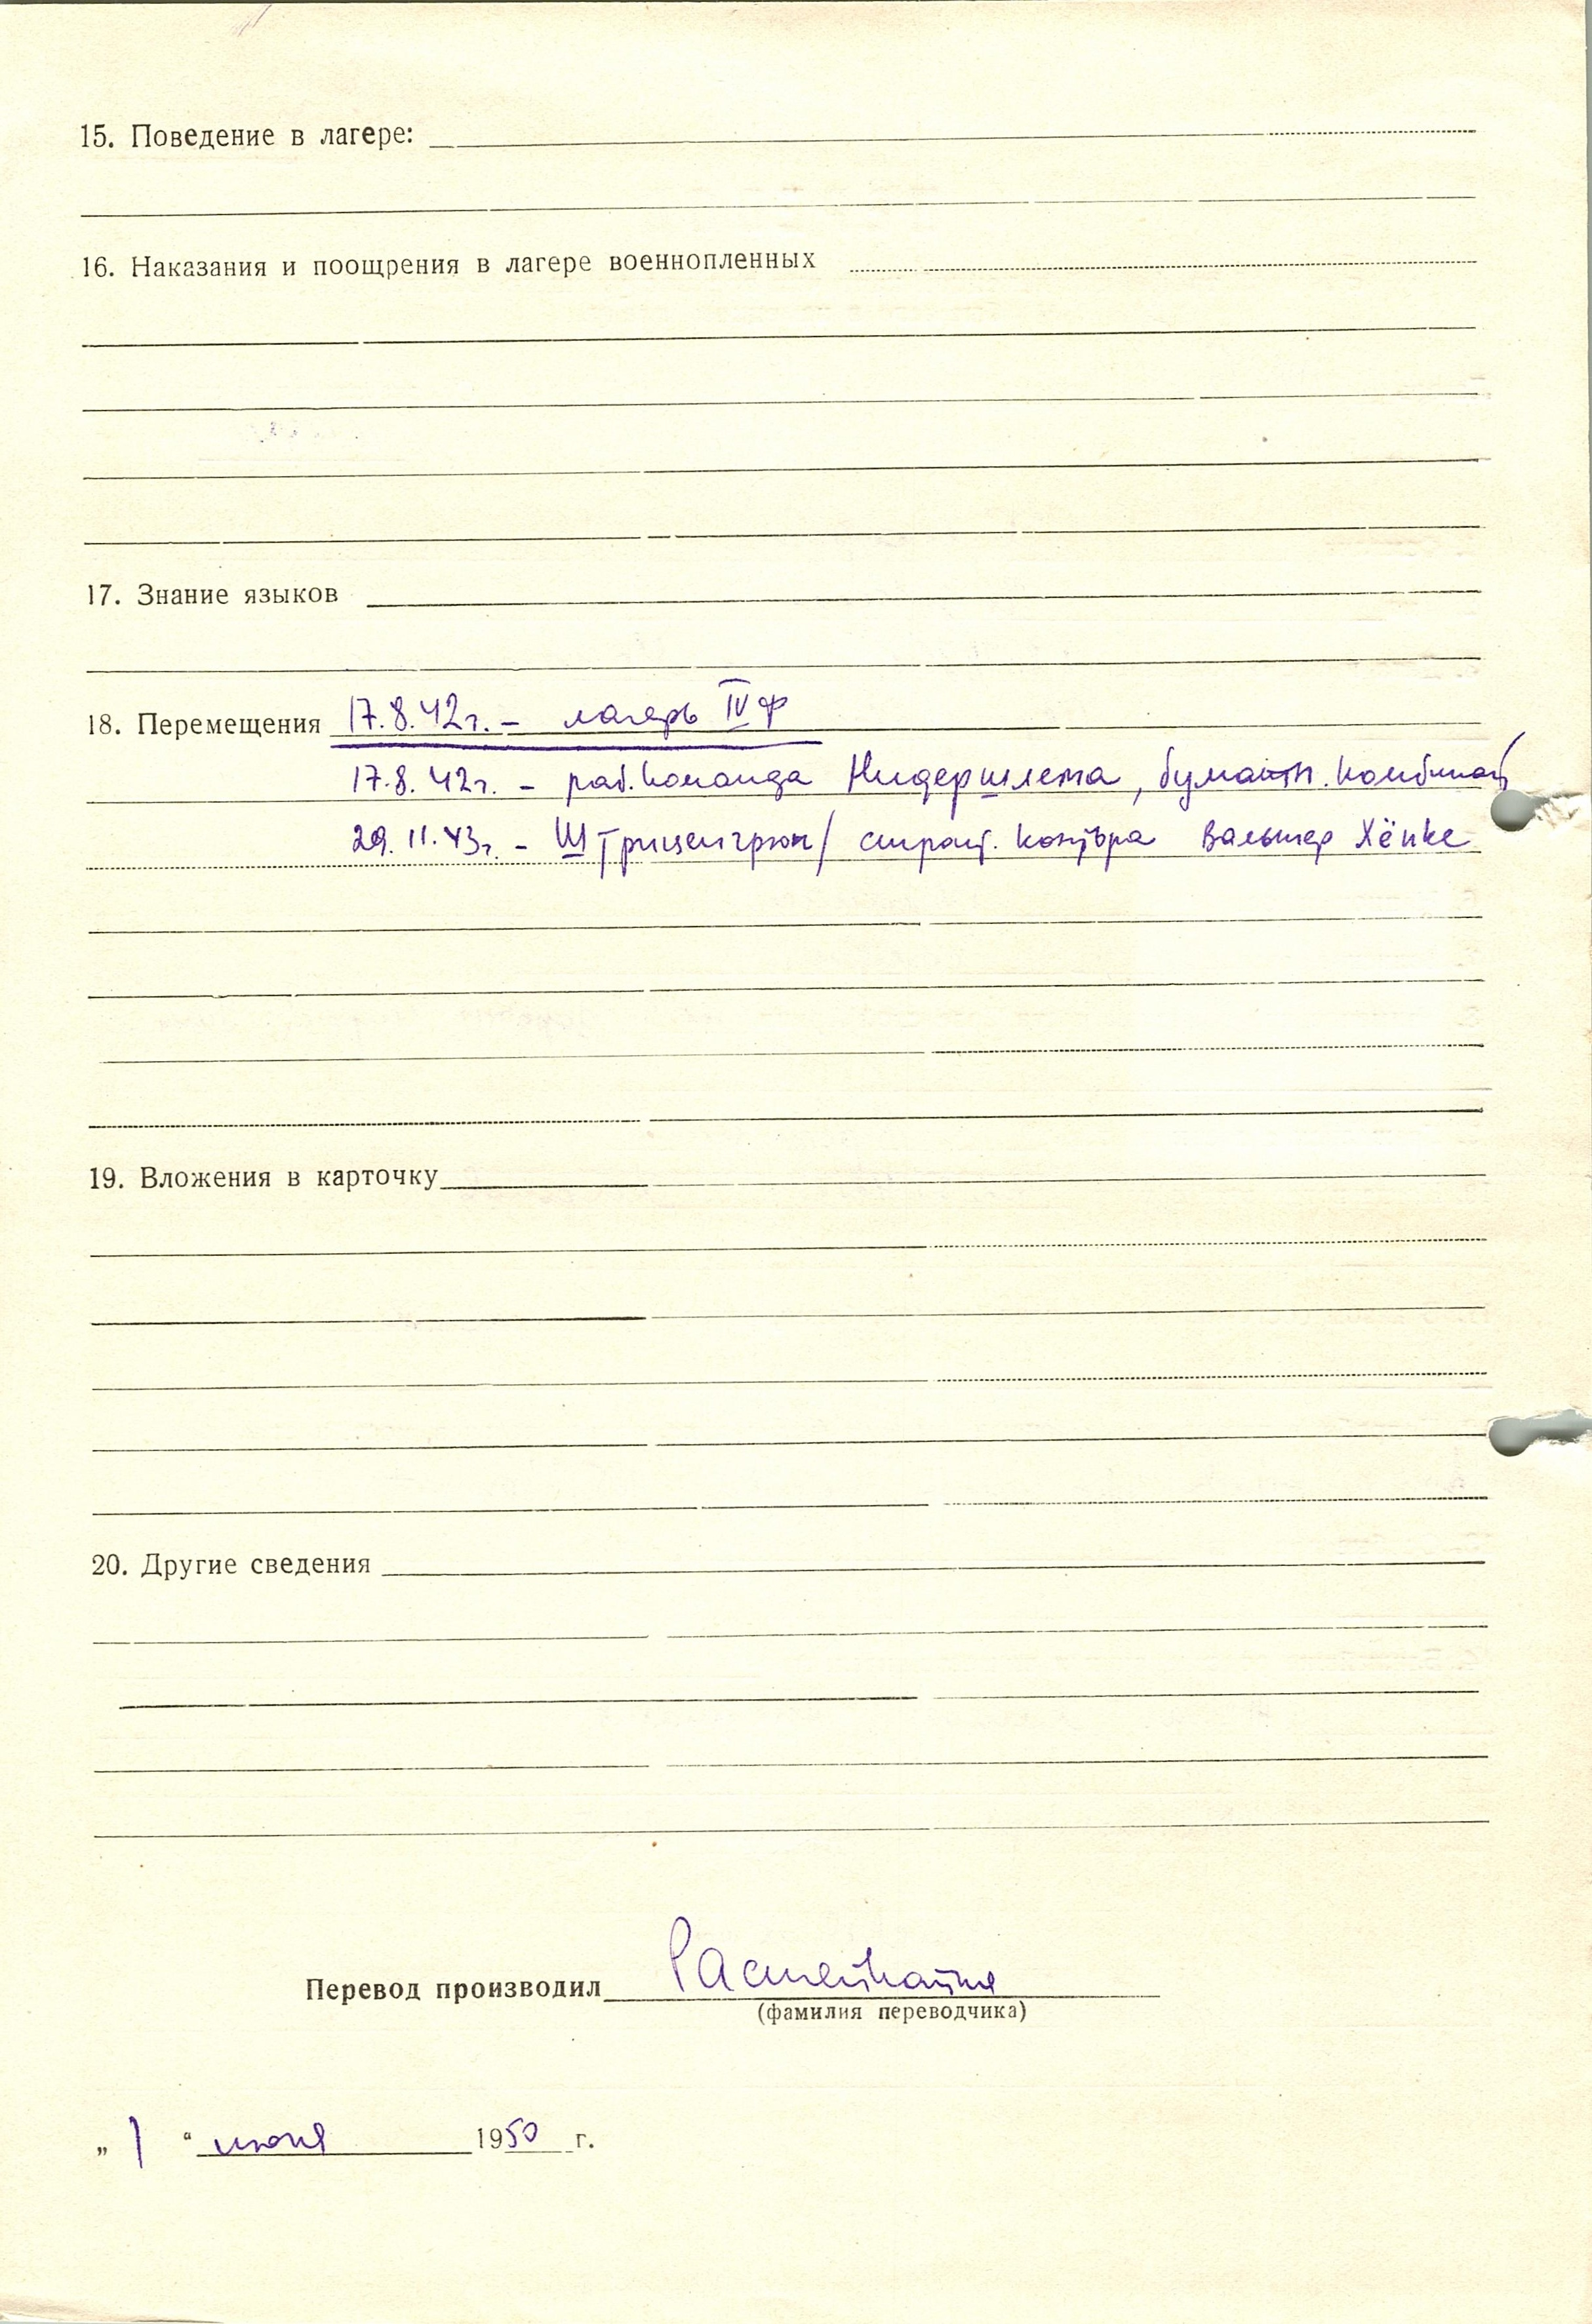 15. Поведение в лагере:
16. Наказания и поощрения в лагере военнопленных
17. Знание языков
18. Перемещения 17.8.42г. – лагерь IV Ф
17.8.42г. – раб. команда Нидершлема, бумажн. комбинат
29.11.43г. – Штриценгрюн/ строит. контора Вальтер Хёпке
19. Вложения в карточку
20. Другие сведения
Перевод производил
(фамилия переводчика)
„ 1 “ июня 1950 г.